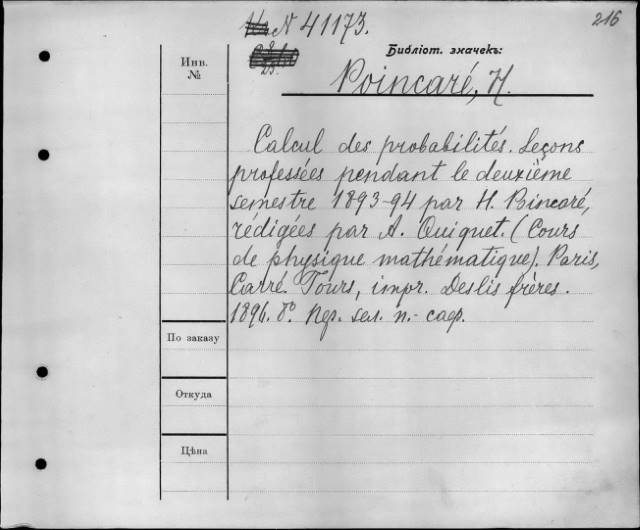 N 41173.
216
Библіот. значекъ:
Инв.
№
Poincaré, H.
Calcul des probabilités. Leçons
professées pendant le deuxième
semestre 1893-94 par H. Poincaré,
rédigées par A. Quiquet. (Cours
de physique mathématique). Paris,
Carré. Tours, impr. Deslis frères.
1896. 8°. Пер. зел. п.-
По заказу
Откуда
Цѣна